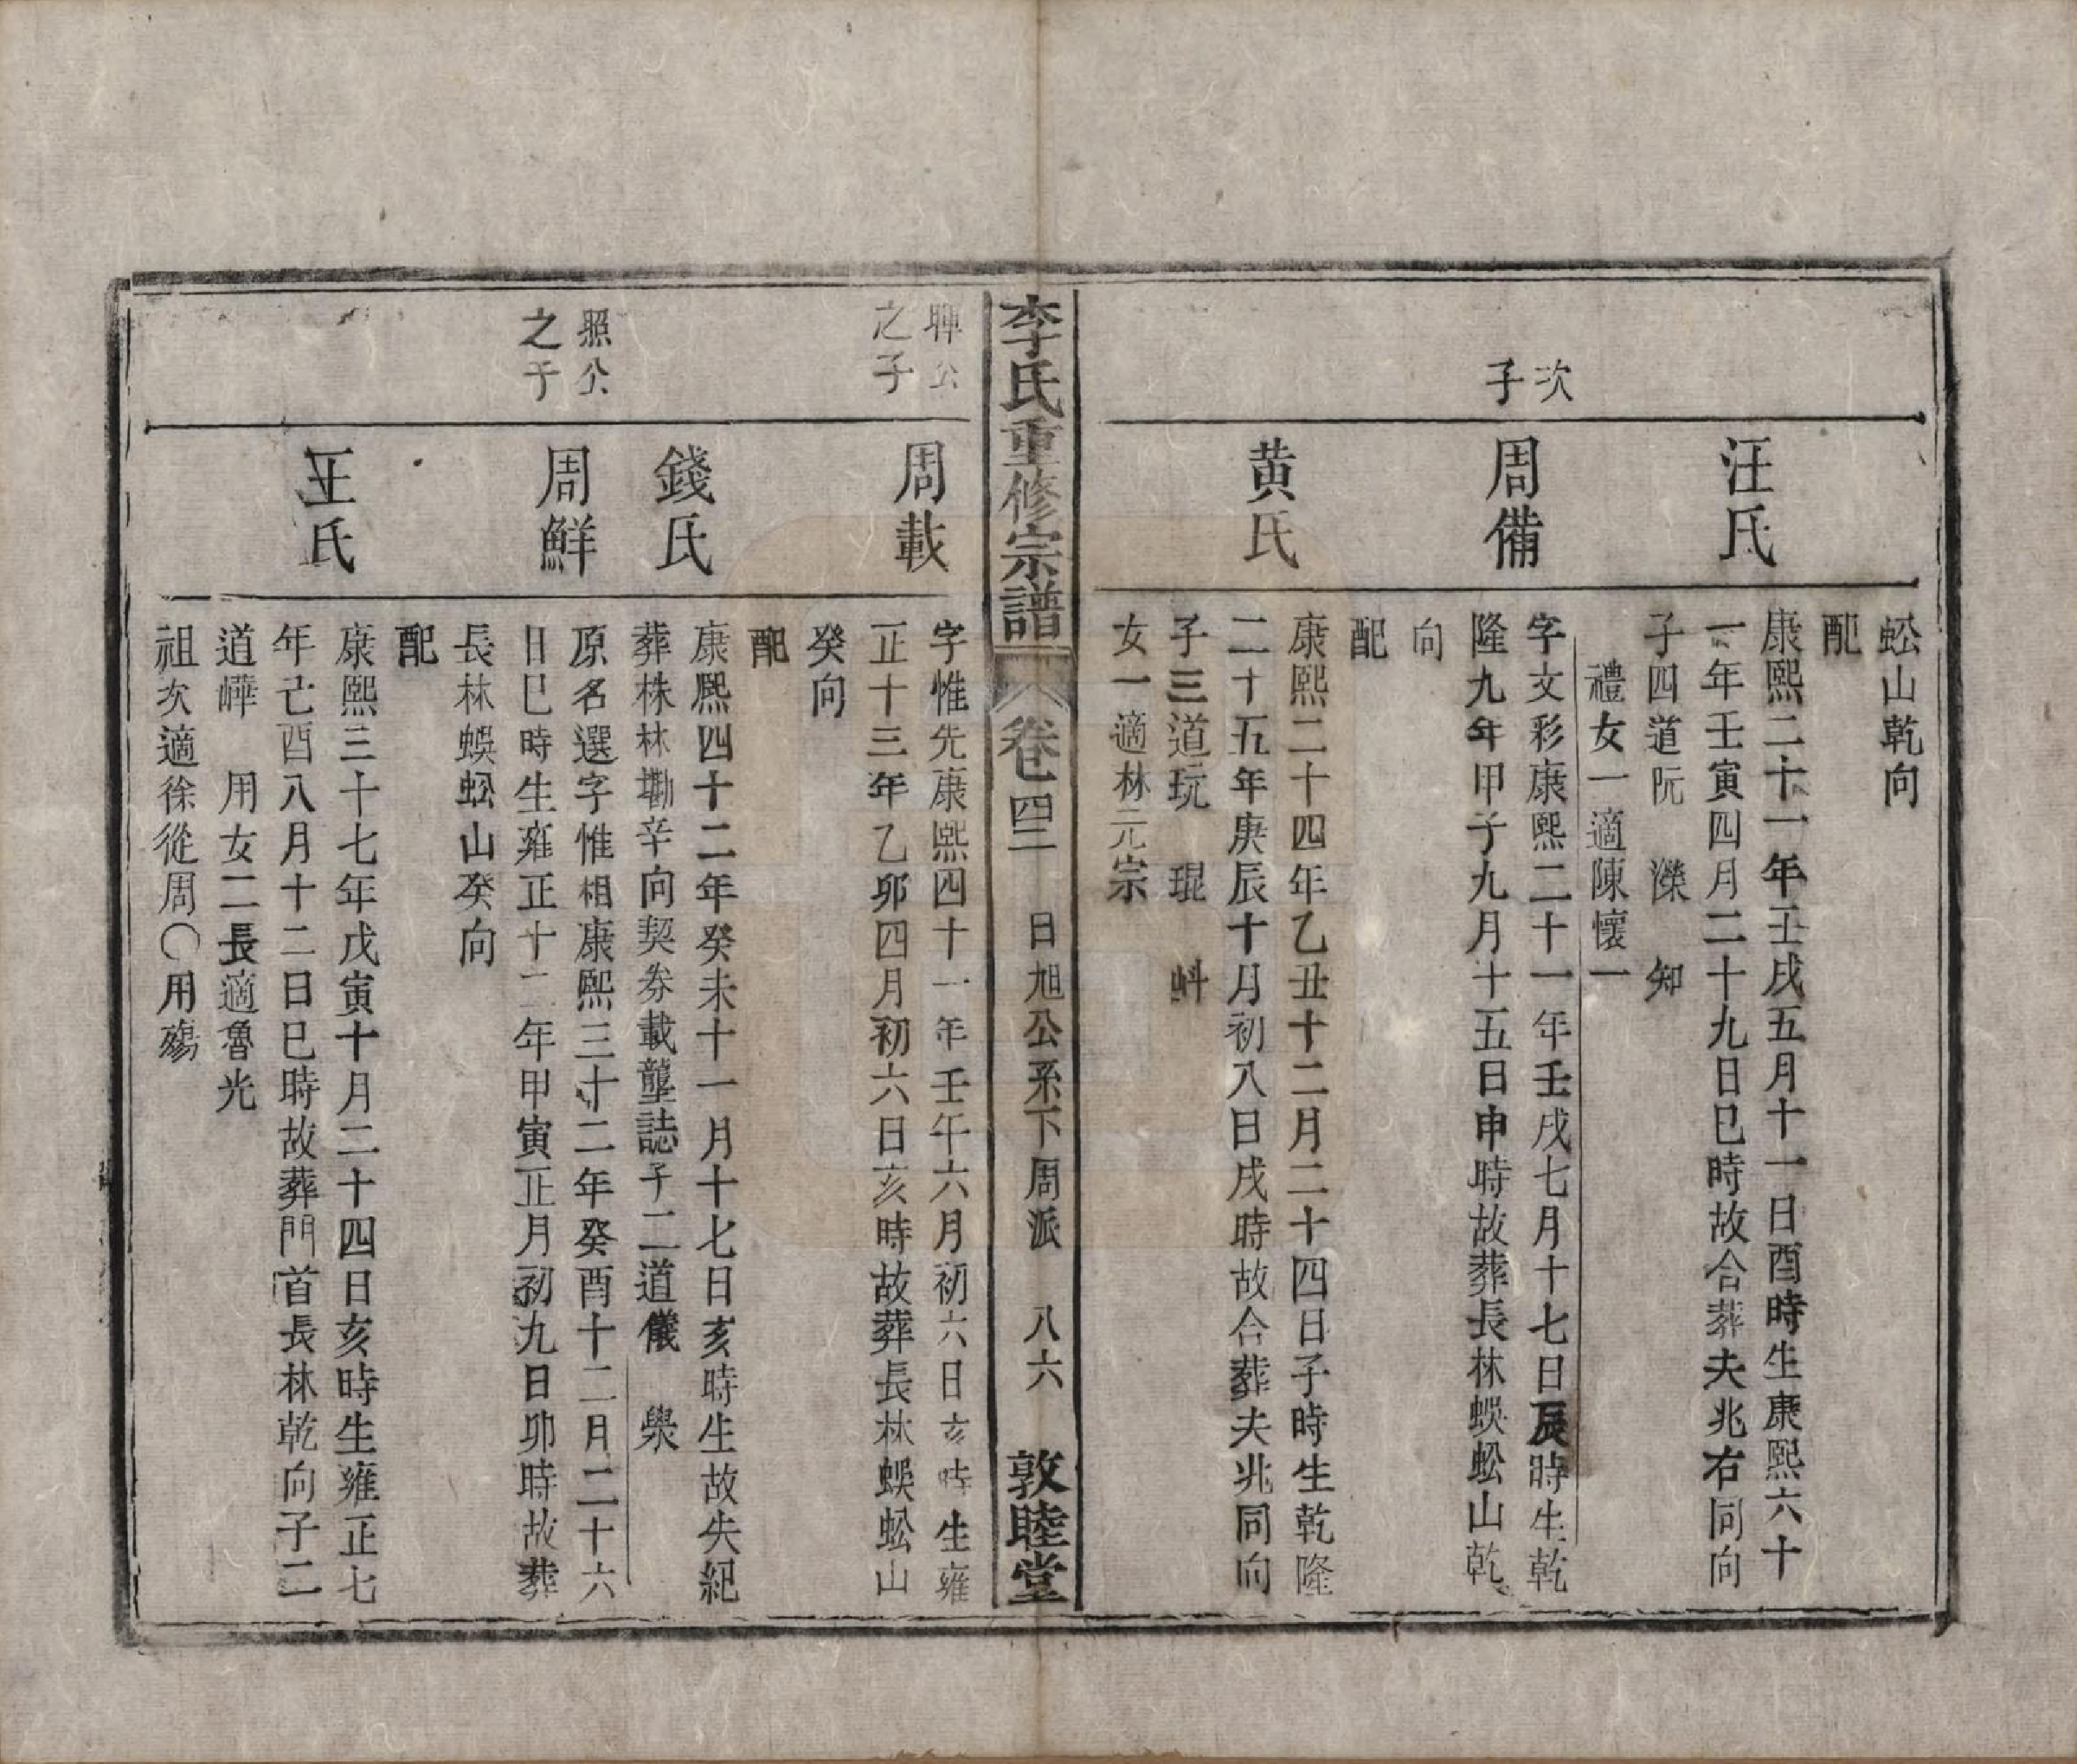 蚣山乾向
汪氏
配
康熙二十一年壬戌五月十一日酉時生康熙六十
一年壬寅四月二十九日巳時故合葬夫兆右同向
子四道阮 濼 知
禮女一適陳懷一
次
子
周備
字文彩康熙二十一年壬戌七月十七日辰時生乾
隆九年甲子九月十五日申時故葬長林蜈蚣山乾
向
黃氏
配
康熙二十四年乙丑十二月二十四日子時生乾隆
二十五年庚辰十月初八日戌時故合葬夫兆同向
子三道玩 琨 蚪
女一適林元宗
李氏重修宗譜 卷四 日旭公系下周派 八六 敦睦堂
公
之子
周載
字惟先康熙四十一年壬午六月初六日亥時生雍
正十三年乙卯四月初六日亥時故葬長林蜈蚣山
癸向
錢氏
配
康熙四十二年癸未十一月十七日亥時生故失紀
葬株林墈辛向契券載壟誌子二道儀 㮣
照公
之子
周鮮
原名選字惟相康熙三十二年癸酉十二月二十六
日巳時生雍正十二年甲寅正月初九日卯時故葬
長林蜈蚣山癸向
王氏
配
康熙三十七年戊寅十月二十四日亥時生雍正七
年己酉八月十二日巳時故葬門首長林乾向子二
道嶂 用女二長適魯光
祖次適徐從周〇用殤